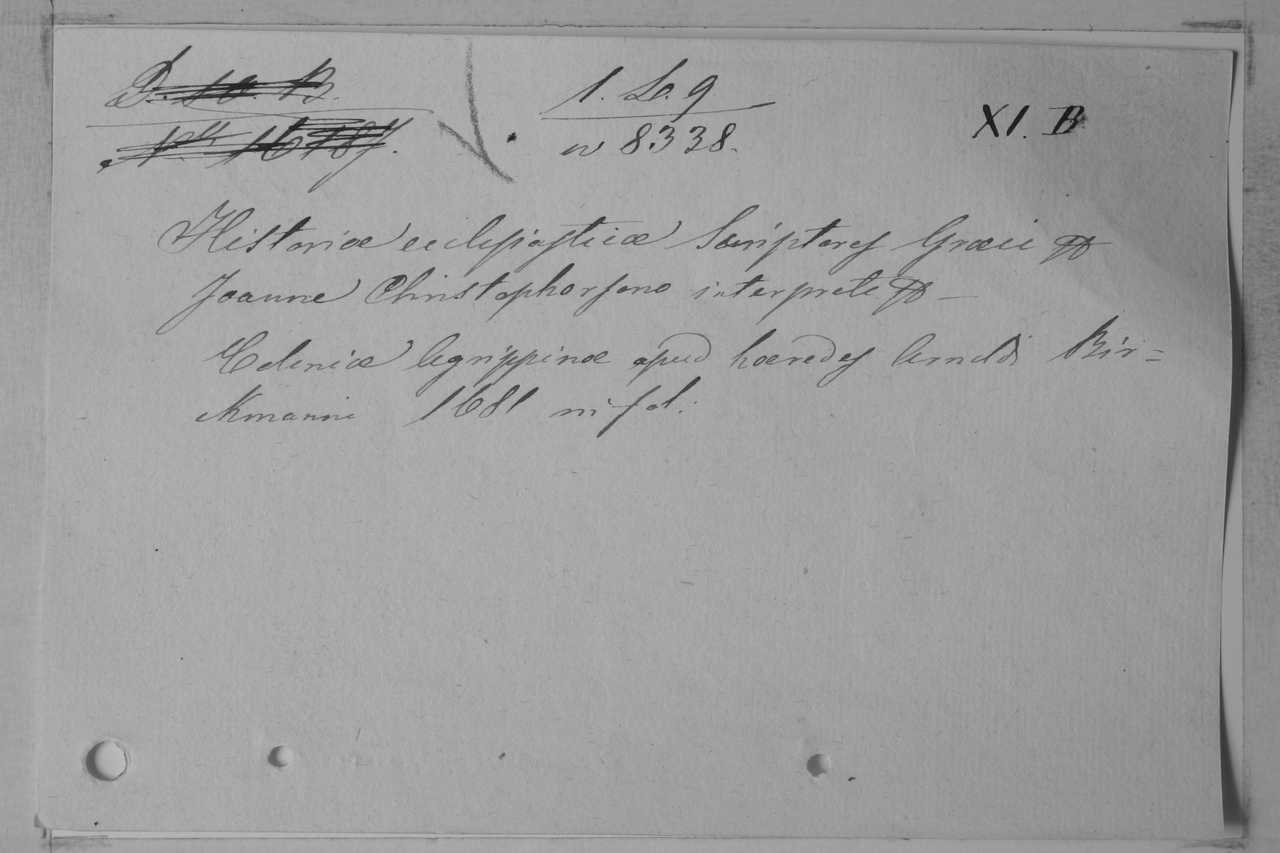 D. 10. B.
1. Lo. 9
XI. B
n 8338.
Historiæ ecclesiasticæ Scriptores Græci
Joanne Christophorsono interprete
Coloniæ Agrippinæ apud hæredes Arnoldi Bir=
ckmanni 1681 in fol.